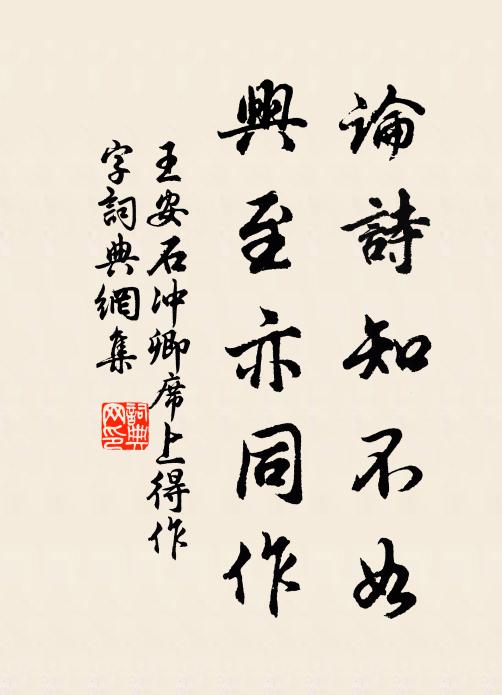 論詩知不如
興至亦同作
王安石冲卿席上得作
字詞典網集
詞典
网印